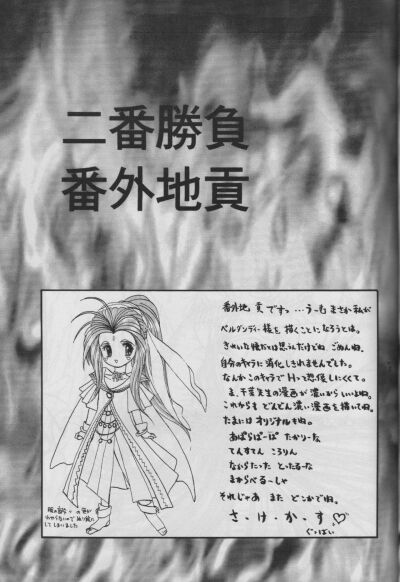 二番勝負
番外地貢
番外地 貢 ですっ…うーむ まさか私が
ベルダンディー様を描くことになろうとは。
きれいな娘だとは思うんだけどね ごめんね。
自分のキャラに消化しきれませんでした。
なんかこのキャラでHって想像しにくくて。
ま、千葉先生の漫画が濃いからいいよね。
これからも どんどん濃い漫画を描いてね。
たまには オリジナルもね。
あぱらぱーぱ たかりーな
てんすてん ころりん
ならたった とったるーな
まからべるーしゃ
それじゃあ また どこかでね。
さ・け・か・す♡
ぐっばい
服の
してしまいました